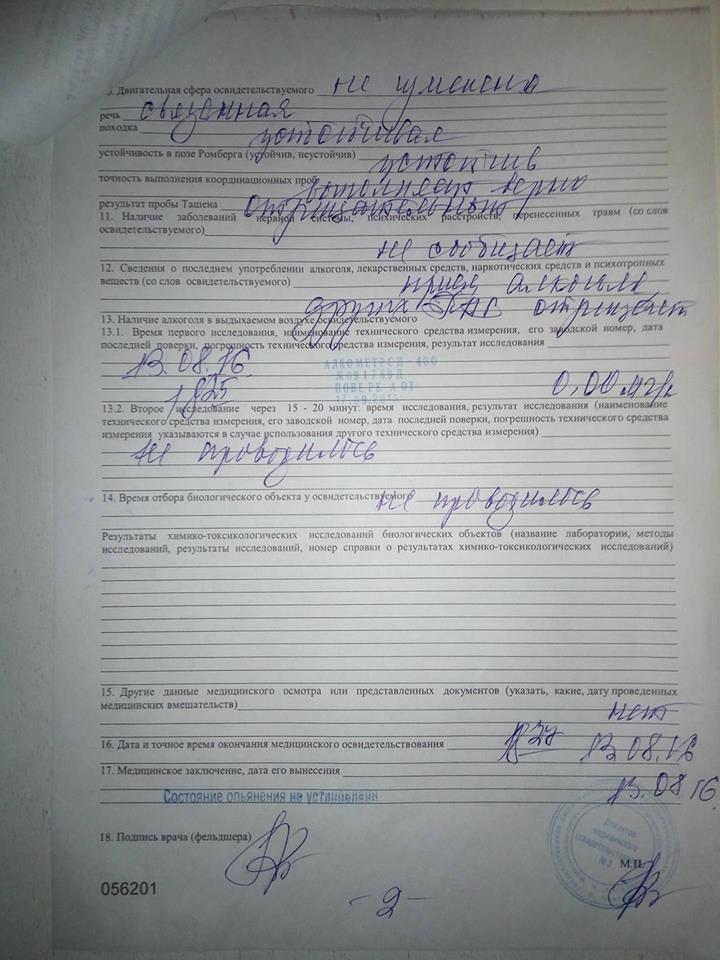 . Двигательная сфера освидетельствуемого не изменена
речь связанная
походка устойчивая
устойчивость в позе Ромберга (устойчив, неустойчив) устойчив
точность выполнения координационных проб выполняет верно
результат пробы Ташена отрицательный
11. Наличие заболеваний нервной системы, психических расстройств, перенесенных травм (со слов
освидетельствуемого)
не сообщает
12. Сведения о последнем употреблении алкоголя, лекарственных средств, наркотических средств и психотропных
веществ (со слов освидетельствуемого) прием алкоголя
других ПАВ отрицает
13. Наличие алкоголя в выдыхаемом воздухе освидетельствуемого
13.1. Время первого исследования, наименование технического средства измерения, его заводской номер, дата
последней поверки, погрешность технического средства измерения, результат исследования
13.08.16.
АЛКОМЕТР CD-400
ПОВЕРКА ОТ
17.09.2015
18 25 0,00 мг/л
13.2. Второе исследование через 15 - 20 минут: время исследования, результат исследования (наименование
технического средства измерения, его заводской номер, дата последней поверки, погрешность технического средства
измерения указываются в случае использования другого технического средства измерения)
не проводилось
14. Время отбора биологического объекта у освидетельствуемого не проводилось
Результаты химико-токсикологических исследований биологических объектов (название лаборатории, методы
исследований, результаты исследований, номер справки о результатах химико-токсикологических исследований)
15. Другие данные медицинского осмотра или представленных документов (указать, какие, дату проведенных
медицинских вмешательств) нет
16. Дата и точное время окончания медицинского освидетельствования 18 27 13.08.16
17. Медицинское заключение, дата его вынесения
Состояние опьянения не установлено 13.08 16
18. Подпись врача (фельдшера)
М.П.
Для актов
медицинского
освидетельствования
№ 3
056201
- 2 -